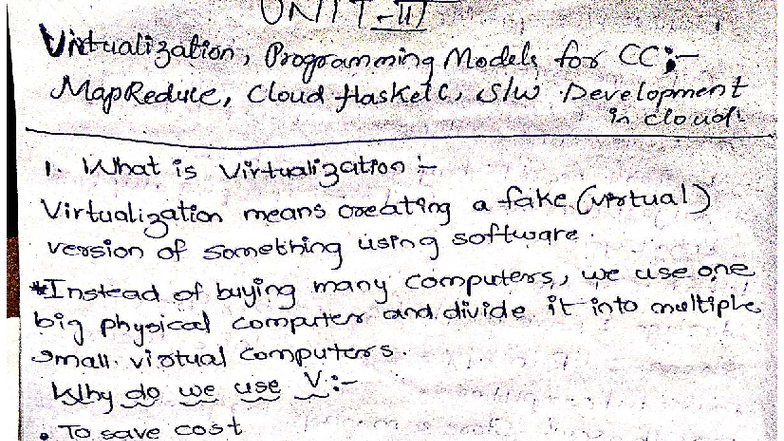 UNIT-III
Virtualization, Programming Models for CC:-
MapReduce, Cloud Haskell, S/W Development
in cloud.
1. What is Virtualization :-
Virtualization means creating a fake (virtual)
version of something using software.
*Instead of buying many computers, we use one
big physical computer and divide it into multiple
small virtual computers.
Why do we use V:-
• To save cost